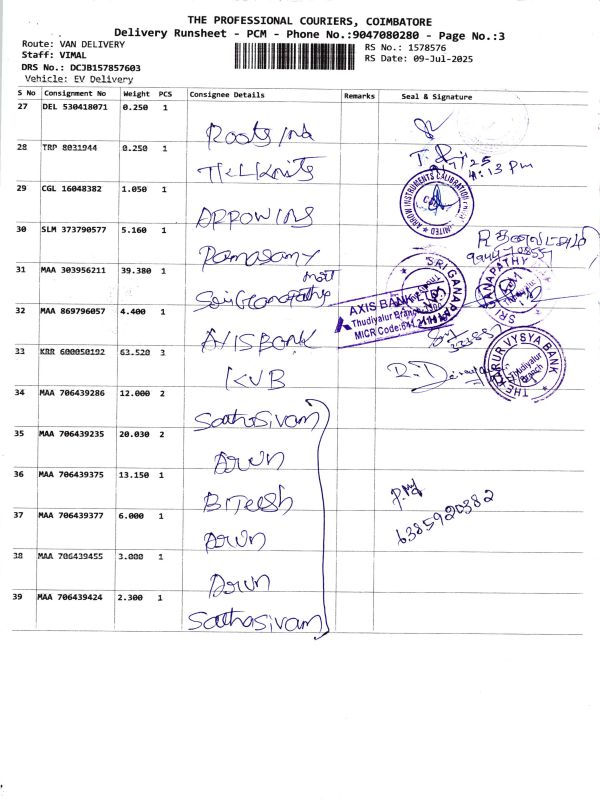 THE PROFESSIONAL COURIERS, COIMBATORE
Delivery Runsheet - PCM - Phone No.:9047080280 - Page No.:3
Route: VAN DELIVERY
Staff: VIMAL
DRS No.: DCJB157857603
Vehicle: EV Delivery
RS No.: 1578576
RS Date: 09-Jul-2025
S No Consignment No Weight PCS Consignee Details Remarks Seal & Signature
27 DEL 530418071 0.250 1 Roots Ind
28 TRP 8031944 0.250 1 4:13 Pm
29 CGL 16048382 1.050 1 ARROW INS ARROW INSTRUMENTS CALIBRATION LIMITED
30 SLM 373790577 5.160 1 Ramasamy
31 MAA 303956211 39.380 1 Sri Ganapathy matt SRI GANAPATHY SRI GANAPATHY
32 MAA 869796057 4.400 1 AXIS BANK AXIS BANK Thudiyalur Branch MICR Code:641
33 KRR 600050192 63.520 3 KVB THE KARUR VYSYA BANK Thudiyalur Branch
34 MAA 706439286 12.000 2 Sathasivam
35 MAA 706439235 20.030 2 Arun
36 MAA 706439375 13.150 1 BriTeesh
37 MAA 706439377 6.000 1 Arun 6385920382
38 MAA 706439455 3.000 1 Arun
39 MAA 706439424 2.300 1 Sathasivam